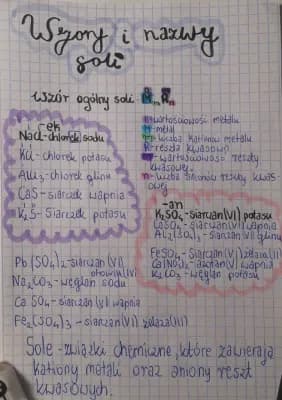 Wzory i nazwy
soli
wzór ogólny soli
n-wartościowość metalu
M-metal
m-liczba kationów metalu
R-reszta kwasowa
m-wartościowość reszty
kwasowej
n-liczba anionów reszty kwas-
owej
-ek
NaCl-chlorek sodu
KCl-chlorek potasu
AlCl3-chlorek glinu
CaS-siarczek wapnia
K2S-siarczek potasu
-an
K2SO4-siarczan(VI) potasu
CaSO4-siarczan(VI) wapnia
Al2(SO4)3-siarczan(VI) glinu
FeSO4-siarczan(VI) żelaza(II)
Ca(NO3)2-azotan(V) wapnia
K2CO3-węglan potasu
Pb(SO4)2-siarczan(VI)
ołowiu(IV)
Na2CO3-węglan sodu
CaSO4-siarczan(VI) wapnia
Fe2(SO4)3-siarczan(VI) żelaza(III)
Sole-związki chemiczne, które zawierają
kationy metali oraz aniony reszt
kwasowych.